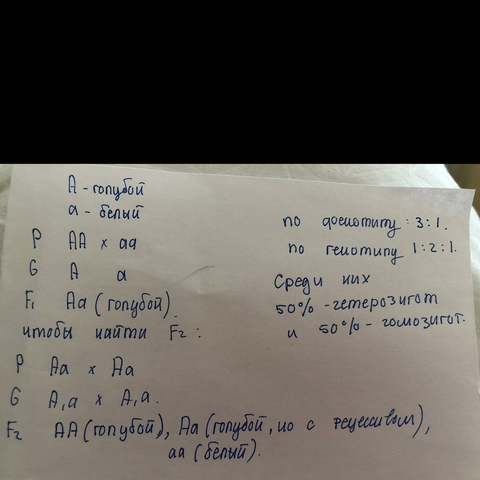 A - голубой
a - белый
P AA x aa
G A a
F₁ Aa (голубой).
чтобы найти F₂ :
P Aa x Aa
G A, a x A, a.
F₂ AA (голубой), Aa (голубой, но с рецессивом),
aa (белый).
по фенотипу : 3 : 1.
по генотипу 1 : 2 : 1.
Среди них
50% - гетерозигот
и 50% - гомозигот.